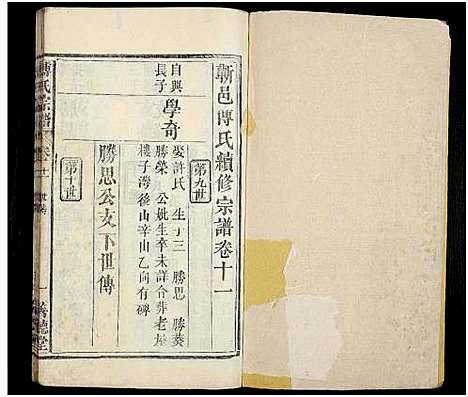 蘄邑傅氏續修宗譜卷十一
第九世
自興
長子
學奇
娶許氏 生子三 勝思 勝葵
勝榮 公妣生卒未詳合葬老屋
樓子灣後山辛山乙向有碑
第十世
勝思公支下世傳
傅氏宗譜
卷十一
世傳
一